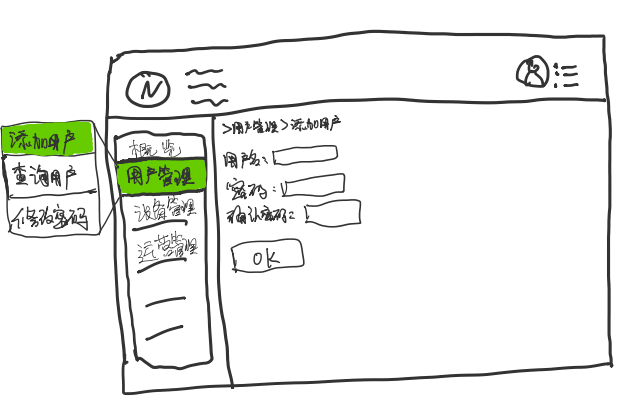 N
添加用户
查询用户
修改密码
概览
用户管理
设备管理
运营管理
>用户管理>添加用户
用户名:
密码:
确认密码:
OK